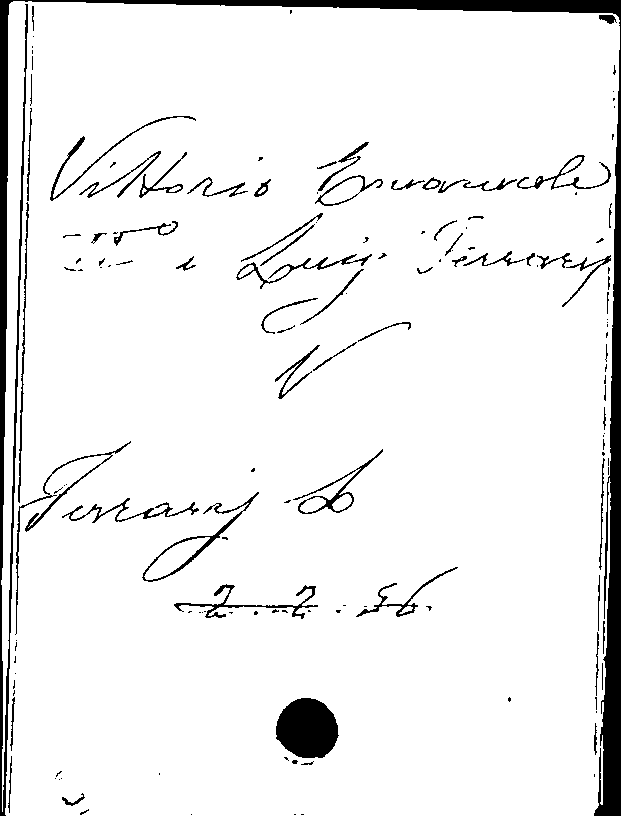 Vittorio Emanuele
IIº e Luigi Ferrarij
V
Ferrarij L